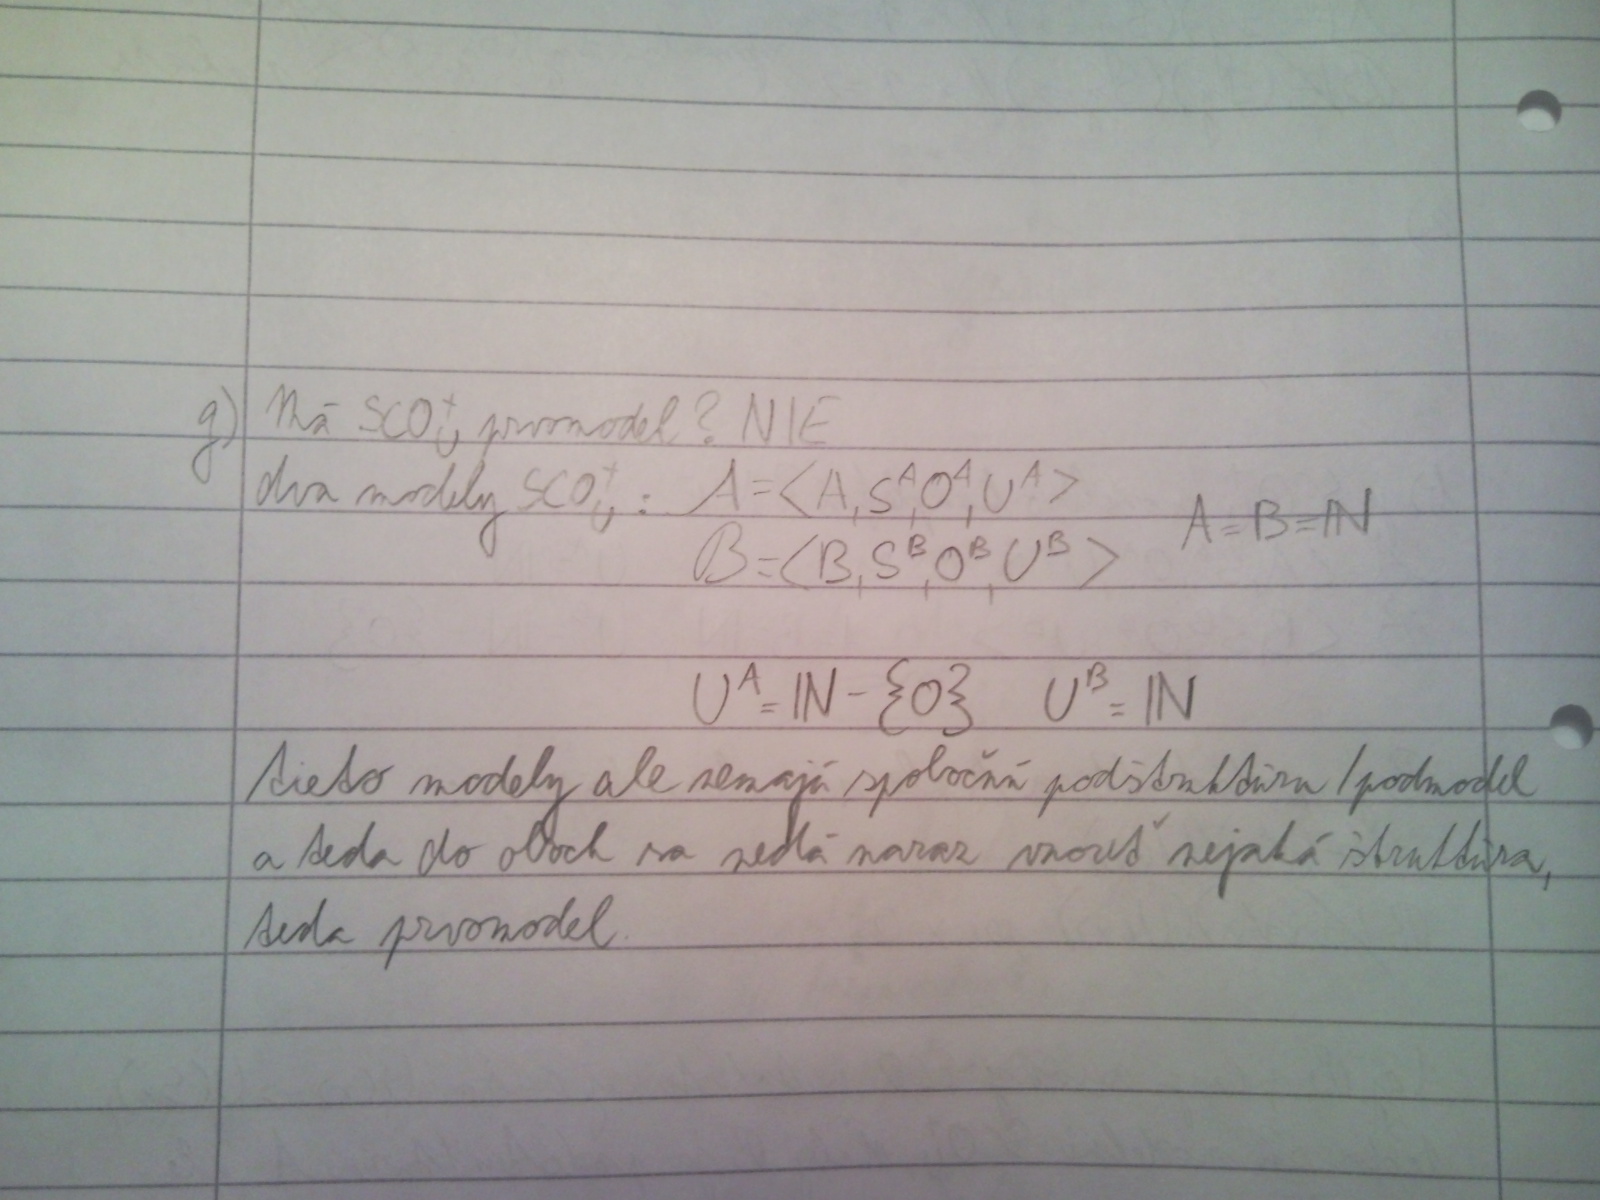 g) Má SCO⁺U prvomodel? NIE
dva modely SCO⁺U : A=<A,Sᴬ,Oᴬ,Uᴬ> A=B=ℕ
B=<B,Sᴮ,Oᴮ,Uᴮ>
Uᴬ=ℕ-{O} Uᴮ=ℕ
tieto modely ale nemajú spoločnú podštruktúru/podmodel
a teda do oboch sa nedá naraz vnoriť nejaká štruktúra,
teda prvomodel.